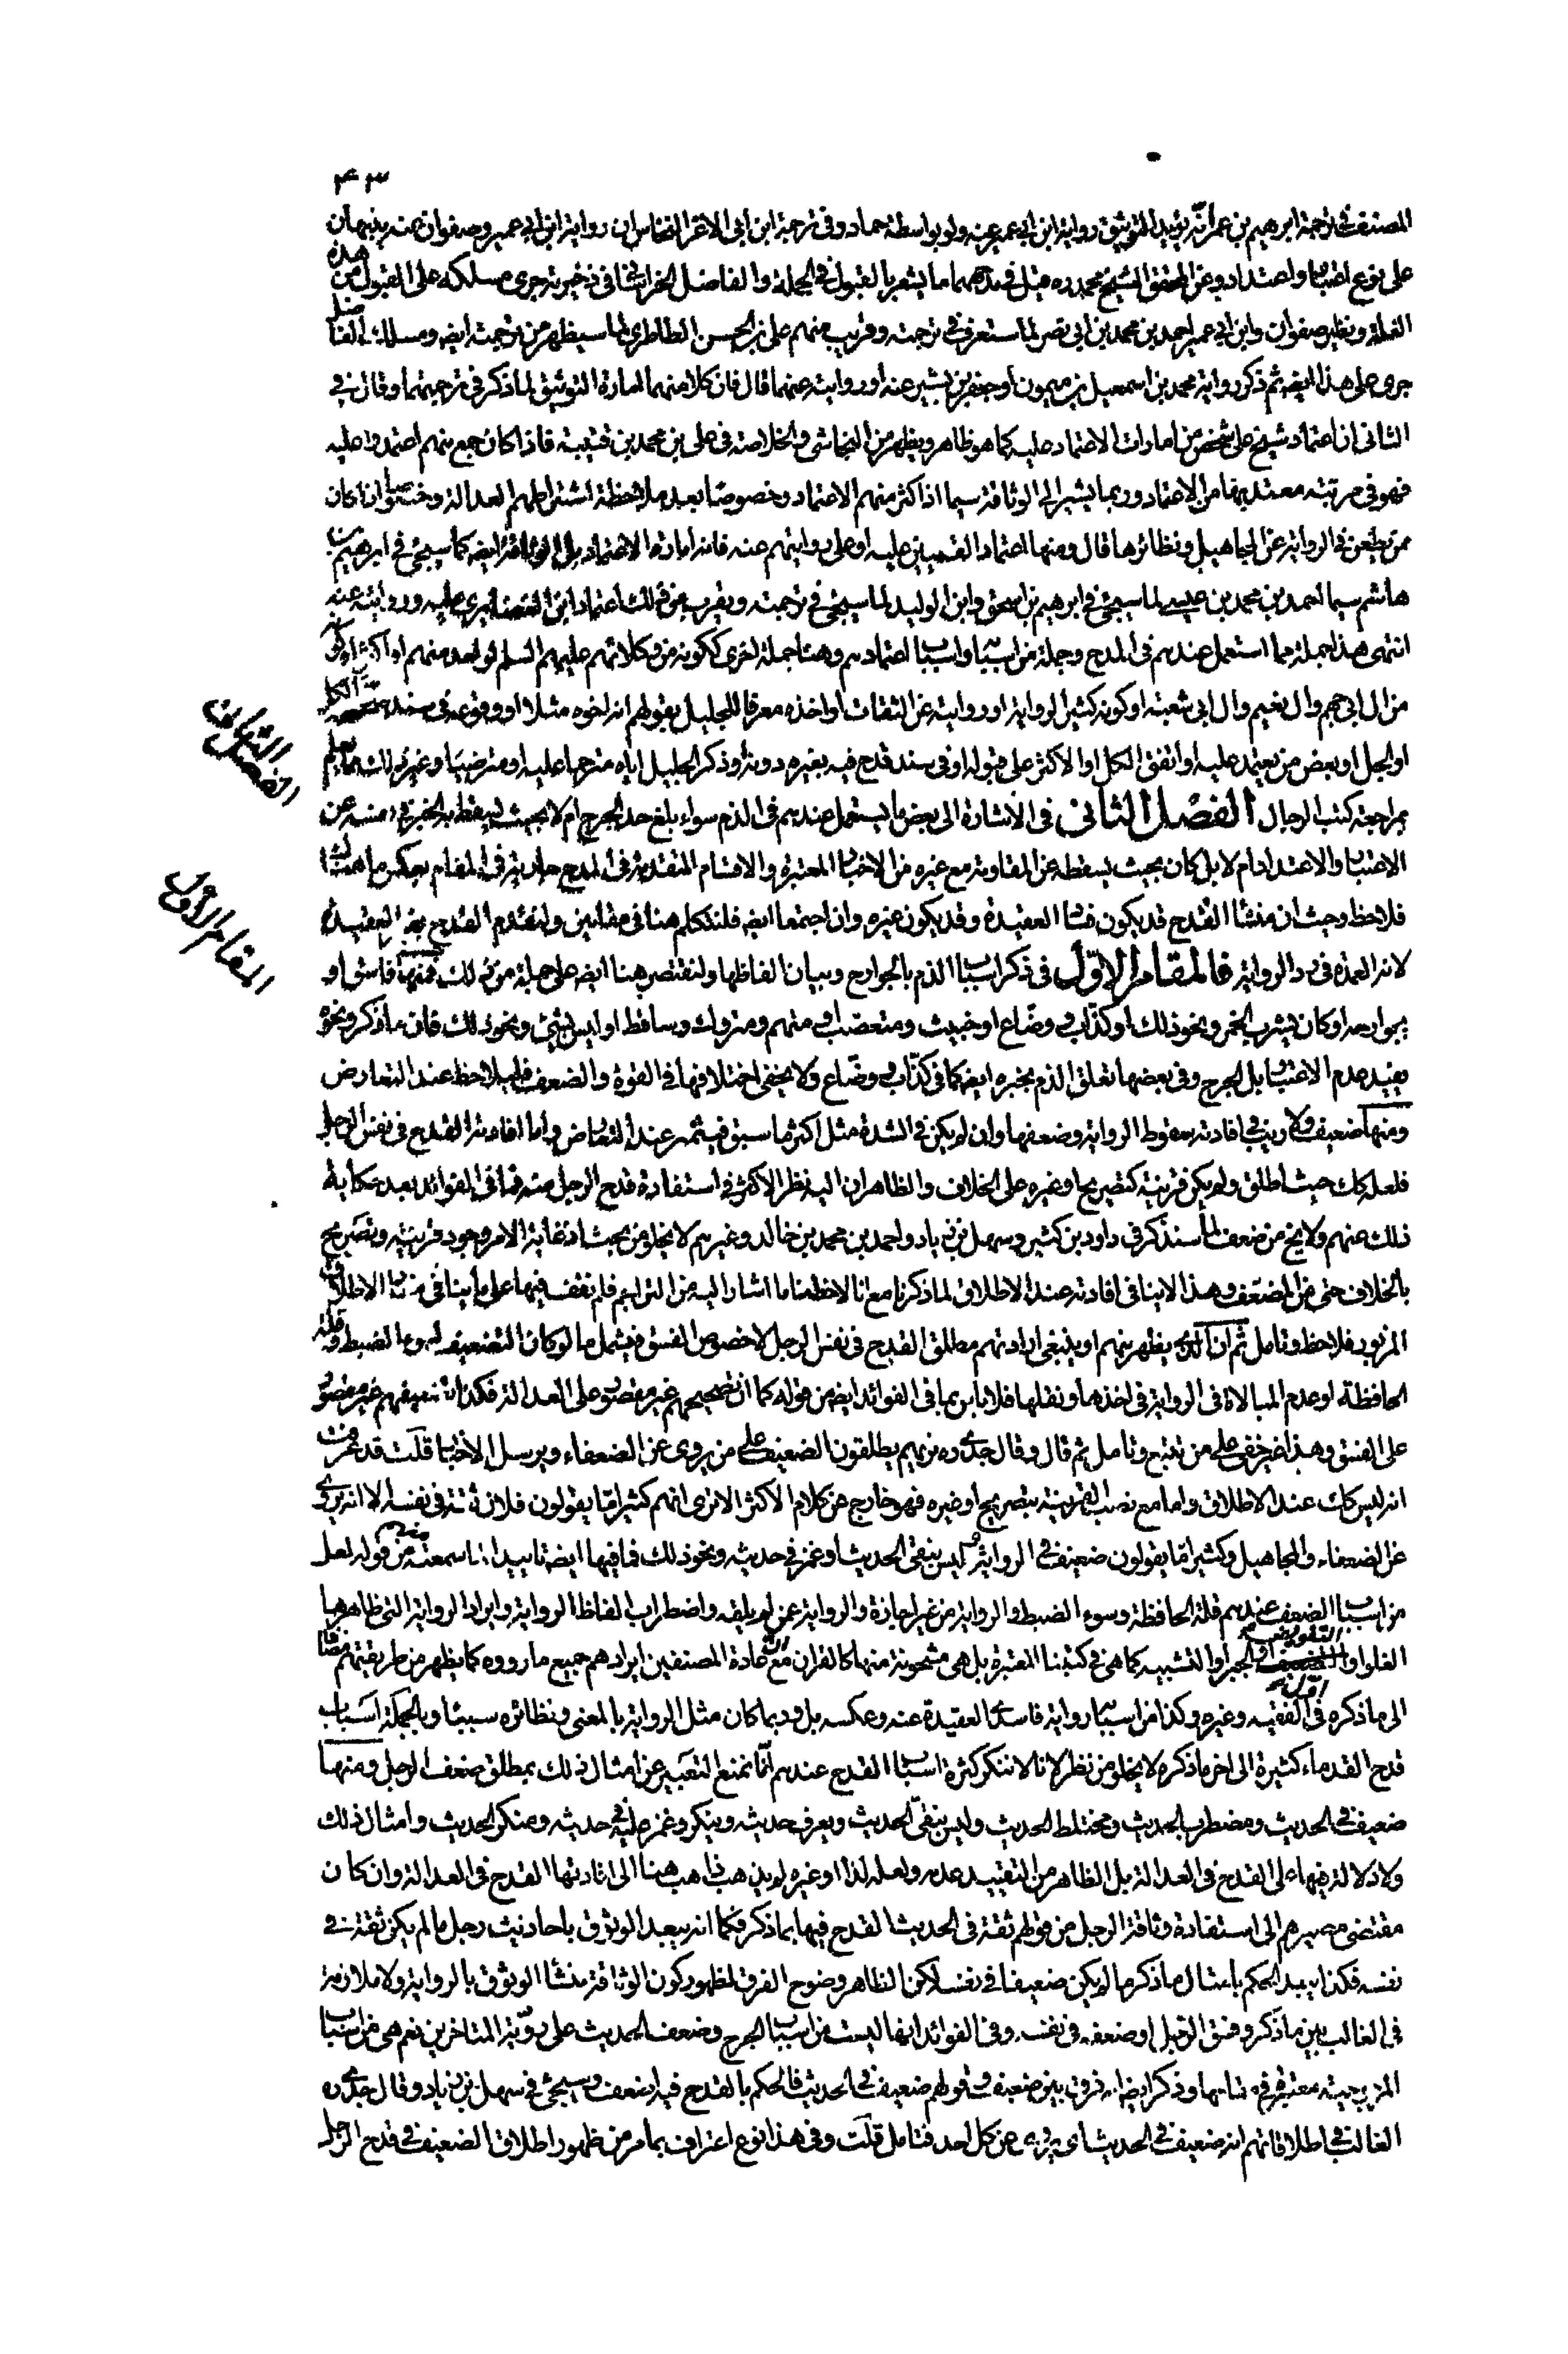 ٤٣
المصنف في ترجمة ابرهيم بن عمر انّه يؤيد التوثيق رواية ابن ابي عمير عنه ولو بواسطة حماد وفي ترجمة ابن ابي الاغر النخاس ان رواية ابن ابي عمير وصفوان عنه ينبهان
على نوع اعتبار واعتداد وعن المحقق الشيخ محمد ره قيل في مدحهما ما يشعر بالقبول في الجملة والفاضل الخراساني في ذخيرته جرى مسلكه على القبول من هذه
العلة ونظير صفوان وابن ابي عمير احمد بن محمد بن ابي نصر لما ستعرف في ترجمته وقريب منهم على بن الحسن الطاطري لما سيظهر من ترجمته ايضه ومسلك الفاضل
جرى على هذا ايضه ثم ذكر رواية محمد بن اسمعيل بن ميمون او جعفر بن بشير عنه او روايته عنهما قال فان كلا منهما امارة التوثيق لما ذكر في ترجمتهما وقال في
الثاني ان اعتماد شيخ على شخص من امارات الاعتماد عليه كما هو ظاهر ويظهر من النجاشي والخلاصة في على بن محمد بن قتيبة فاذا كان جمع منهم اعتمدوا عليه
فهو في مرتبة معتد بها من الاعتماد وربما يشير الى الوثاقة سيما اذا كثر منهم الاعتماد وخصوصا بعد ملاحظة اشتراطهم العدالة وخصوصا ان كان
ممن يطعن في الرواية عن المجاهيل ونظائرها قال ومنها اعتماد القميين عليه او على روايتهم عنه فانه امارة الاعتماد بل الوثاقة ايضه كما سيجئ في ابرهيم بن
هاشم سيما احمد بن محمد بن عيسى لما سيجئ في ابرهيم بن اسحق وابن الوليد لما سيجئ في ترجمته ويقرب من ذلك اعتماد ابن الغضائري عليه وروايته عنه
انتهى هذا جملة مما استعمل عندهم في المدح وجملة من اسبابه واسباب اعتمادهم وهنا جملة اخرى ككونه من وكلائهم عليهم السلم او لاحد منهم او اكثر او كونه
من ال ابي جهم وال نعيم وال ابي شعبة او كونه كثير الرواية او روايته عن الثقات او اخذه معرفا للجليل بقولهم انه اخوه مثلا او وقوعه في سند الكل
او الجل او بعض من يعتمد عليه او اتفق الكل او الاكثر على قبوله او في سند قدح فيه بغيره دونه او ذكر الجليل اياه مترحما عليه او مترضيا وغير ذلك مما يعلم
بمراجعة كتب الرجال الفصل الثاني في الاشارة الى بعض ما يستعمل عندهم في الذم سواء بلغ حد الجرح ام لا بحيث يسقط به الخبر في نفسه عن
الاعتبار والاعتداد ام لا بل كان بحيث يسقطه عن المقاومة مع غيره من الاخبار المعتبرة والاقسام المتقدمة في المدح جارية في المقام بعكس ما هناك
فلاحظ وحيث ان منشأ القدح قد يكون فساد العقيدة وقد يكون غيره وان اجتمعا ايضه فلنتكلم هنا في مقامين ولنقدم القدح بغير العقيدة
لانه العمدة في رد الرواية فالمقام الاوّل في ذكر اسباب الذم بالجوارح وبيان الفاظها ولنقتصر هنا ايضه على جملة من ذلك فمنها فاسق او
بجوارحه او كان يشرب الخمر ونحو ذلك او كذّاب و وضّاع او خبيث ومتعصّب او متهم ومتروك وساقط او ليس بشئ ونحو ذلك فان ما ذكر ونحوه
يفيد عدم الاعتبار بل الجرح وفي بعضها تعلق الذم بخبره ايضه كما في كذّاب ووضّاع ولا يخفى اختلافها في القوة والضعف فليلاحظ عند التعارض
ومنها ضعيف ولا ريب في افادته سقوط الرواية وضعفها وان لم يكن في الشدة مثل اكثر ما سبق فيثمر عند التعارض واما افادته القدح في نفس الرجل
فلعله كك حيث اطلق ولم يكن قرينة كتصريح او غيره على الخلاف والظاهر ان اليه نظر الاكثر في استفادة قدح الرجل منه فما في الفوائد بعد حكاية
ذلك عنهم ولا يخ من ضعف لما سنذكر في داود بن كثير وسهل بن زياد واحمد بن محمد بن خالد وغيرهم لا يخلو من بحث اذ غاية الامر وجود قرينة وتصريح
بالخلاف حتى من المضعف وهذا لا ينافي افادته عند الاطلاق لما ذكرنا مع انا لاحظنا ما اشار اليه من التراجم فلم نقف فيها على ما ينافي الاطلاق
المزبور فلاحظ وتامل ثم ان الذي يظهر منهم او ينبغي ارادتهم مطلق القدح في نفس الرجل لا خصوص الفسق فيشمل ما لو كان التضعيف لسوء الضبط وقلة
الحافظة او عدم المبالاة في الرواية في اخذها ونقلها فلا باس بما في الفوائد ايضه من قوله كما ان تصحيحهم غير مقصور على العدالة فكذا تضعيفهم غير مقصور
على الفسق وهذا غير خفى على من تتبع وتامل ثم قال وقال جدّي ره نريهم يطلقون الضعيف على من يروي عن الضعفاء ويرسل الاخبار قلت قد عرفت
انه ليس كك عند الاطلاق واما مع نصب القرينة بتصريح او غيره فهو خارج عن كلام الاكثر الا ترى انهم كثيرا مّا يقولون فلان ثقة في نفسه الا انه يروي
عن الضعفاء والمجاهيل وكثيرا مّا يقولون ضعيف في الرواية وليس بنقي الحديث او غمز في حديثه ونحو ذلك فما فيها ايضه تاييدا لما سمعته منهم من قوله لعل
من اسباب الضعف عندهم قلة الحافظة وسوء الضبط والرواية من غير اجازة والرواية عمن لم يلقه واضطراب الفاظ الرواية وايراد الرواية التي ظاهرها
الغلو او التفويض او الجبر او التشبيه كما هي في كتبنا المعتبرة بل هي مشحونة منها كالقران مع ان عادة المصنفين ايرادهم جميع ما رووه كما يظهر من طريقتهم مضافا
الى ما ذكره في اوّل الفقيه وغيره وكذا من اسبابه رواية فاسدي العقيدة عنه وعكسه بل وربما كان مثل الرواية بالمعنى ونظائره سببا وبالجملة اسباب
قدح القدماء كثيرة الى اخر ما ذكره لا يخلو من نظر لانا لا ننكر كثرة اسباب القدح عندهم انّما نمنع التعبير عن امثال ذلك بمطلق ضعف الرجل ومنها
ضعيف في الحديث ومضطرب الحديث ومختلط الحديث وليس بنقيّ الحديث ويعرف حديثه وينكر وغمز عليه في حديثه ومنكر الحديث وامثال ذلك
ولا دلالة فيها على القدح في العدالة بل الظاهر من التقييد عدمه ولعله لذا او غيره لم يذهب ذاهب هنا الى افادتها القدح في العدالة وان كان
مقتضى مصيرهم الى استفادة وثاقة الرجل من قولهم ثقة في الحديث القدح فيها بما ذكر فكما انه يبعد الوثوق باحاديث رجل ما لم يكن ثقة في
نفسه فكذا يبعد الحكم بامثال ما ذكر ما لم يكن ضعيفا في نفسه لكن الظاهر وضوح الفرق لظهور كون الوثاقة منشأ الوثوق بالرواية ولا ملازمة
في الغالب بين ما ذكر وفسق الرجل او ضعفه في نفسه وفي الفوائد انها ليست من اسباب الجرح وضعف الحديث على رويّة المتاخرين نعم هي من اسباب
المرجوحية معتبرة في مقامها وذكر ايضا فرق بين ضعيف وقولهم ضعيف في الحديث فالحكم بالقدح فيه اضعف وسيجئ في سهل بن زياد وقال جدّي ره
الغالب في اطلاقاتهم انه ضعيف في الحديث اي يروي عن كل احد فتامل قلت وفي هذا نوع اعتراف بما مر من ظهور اطلاق الضعيف في قدح الرجل
الفصل الثاني
المقام الأوّل